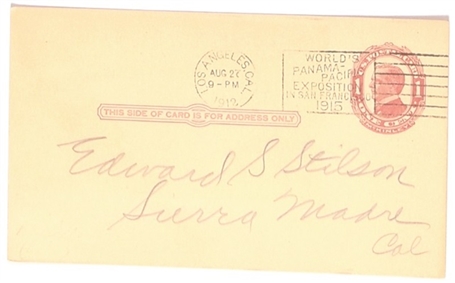 LOS ANGELES, CAL.
AUG 27
9-PM
1912
WORLD'S
PANAMA-
PACIFIC
EXPOSITION
IN SAN FRANCISCO
1915
1 1
THIS SIDE OF CARD IS FOR ADDRESS ONLY
Edward S Stilson
Sierra Madre
Cal